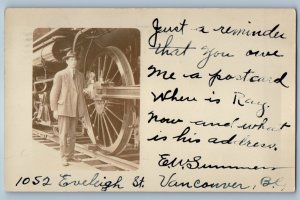 Just a reminder
that you owe
me a postcard
Where is Ray
now and what
is his address.
EWSummers
1052 Eveleigh St. Vancouver, B.C.